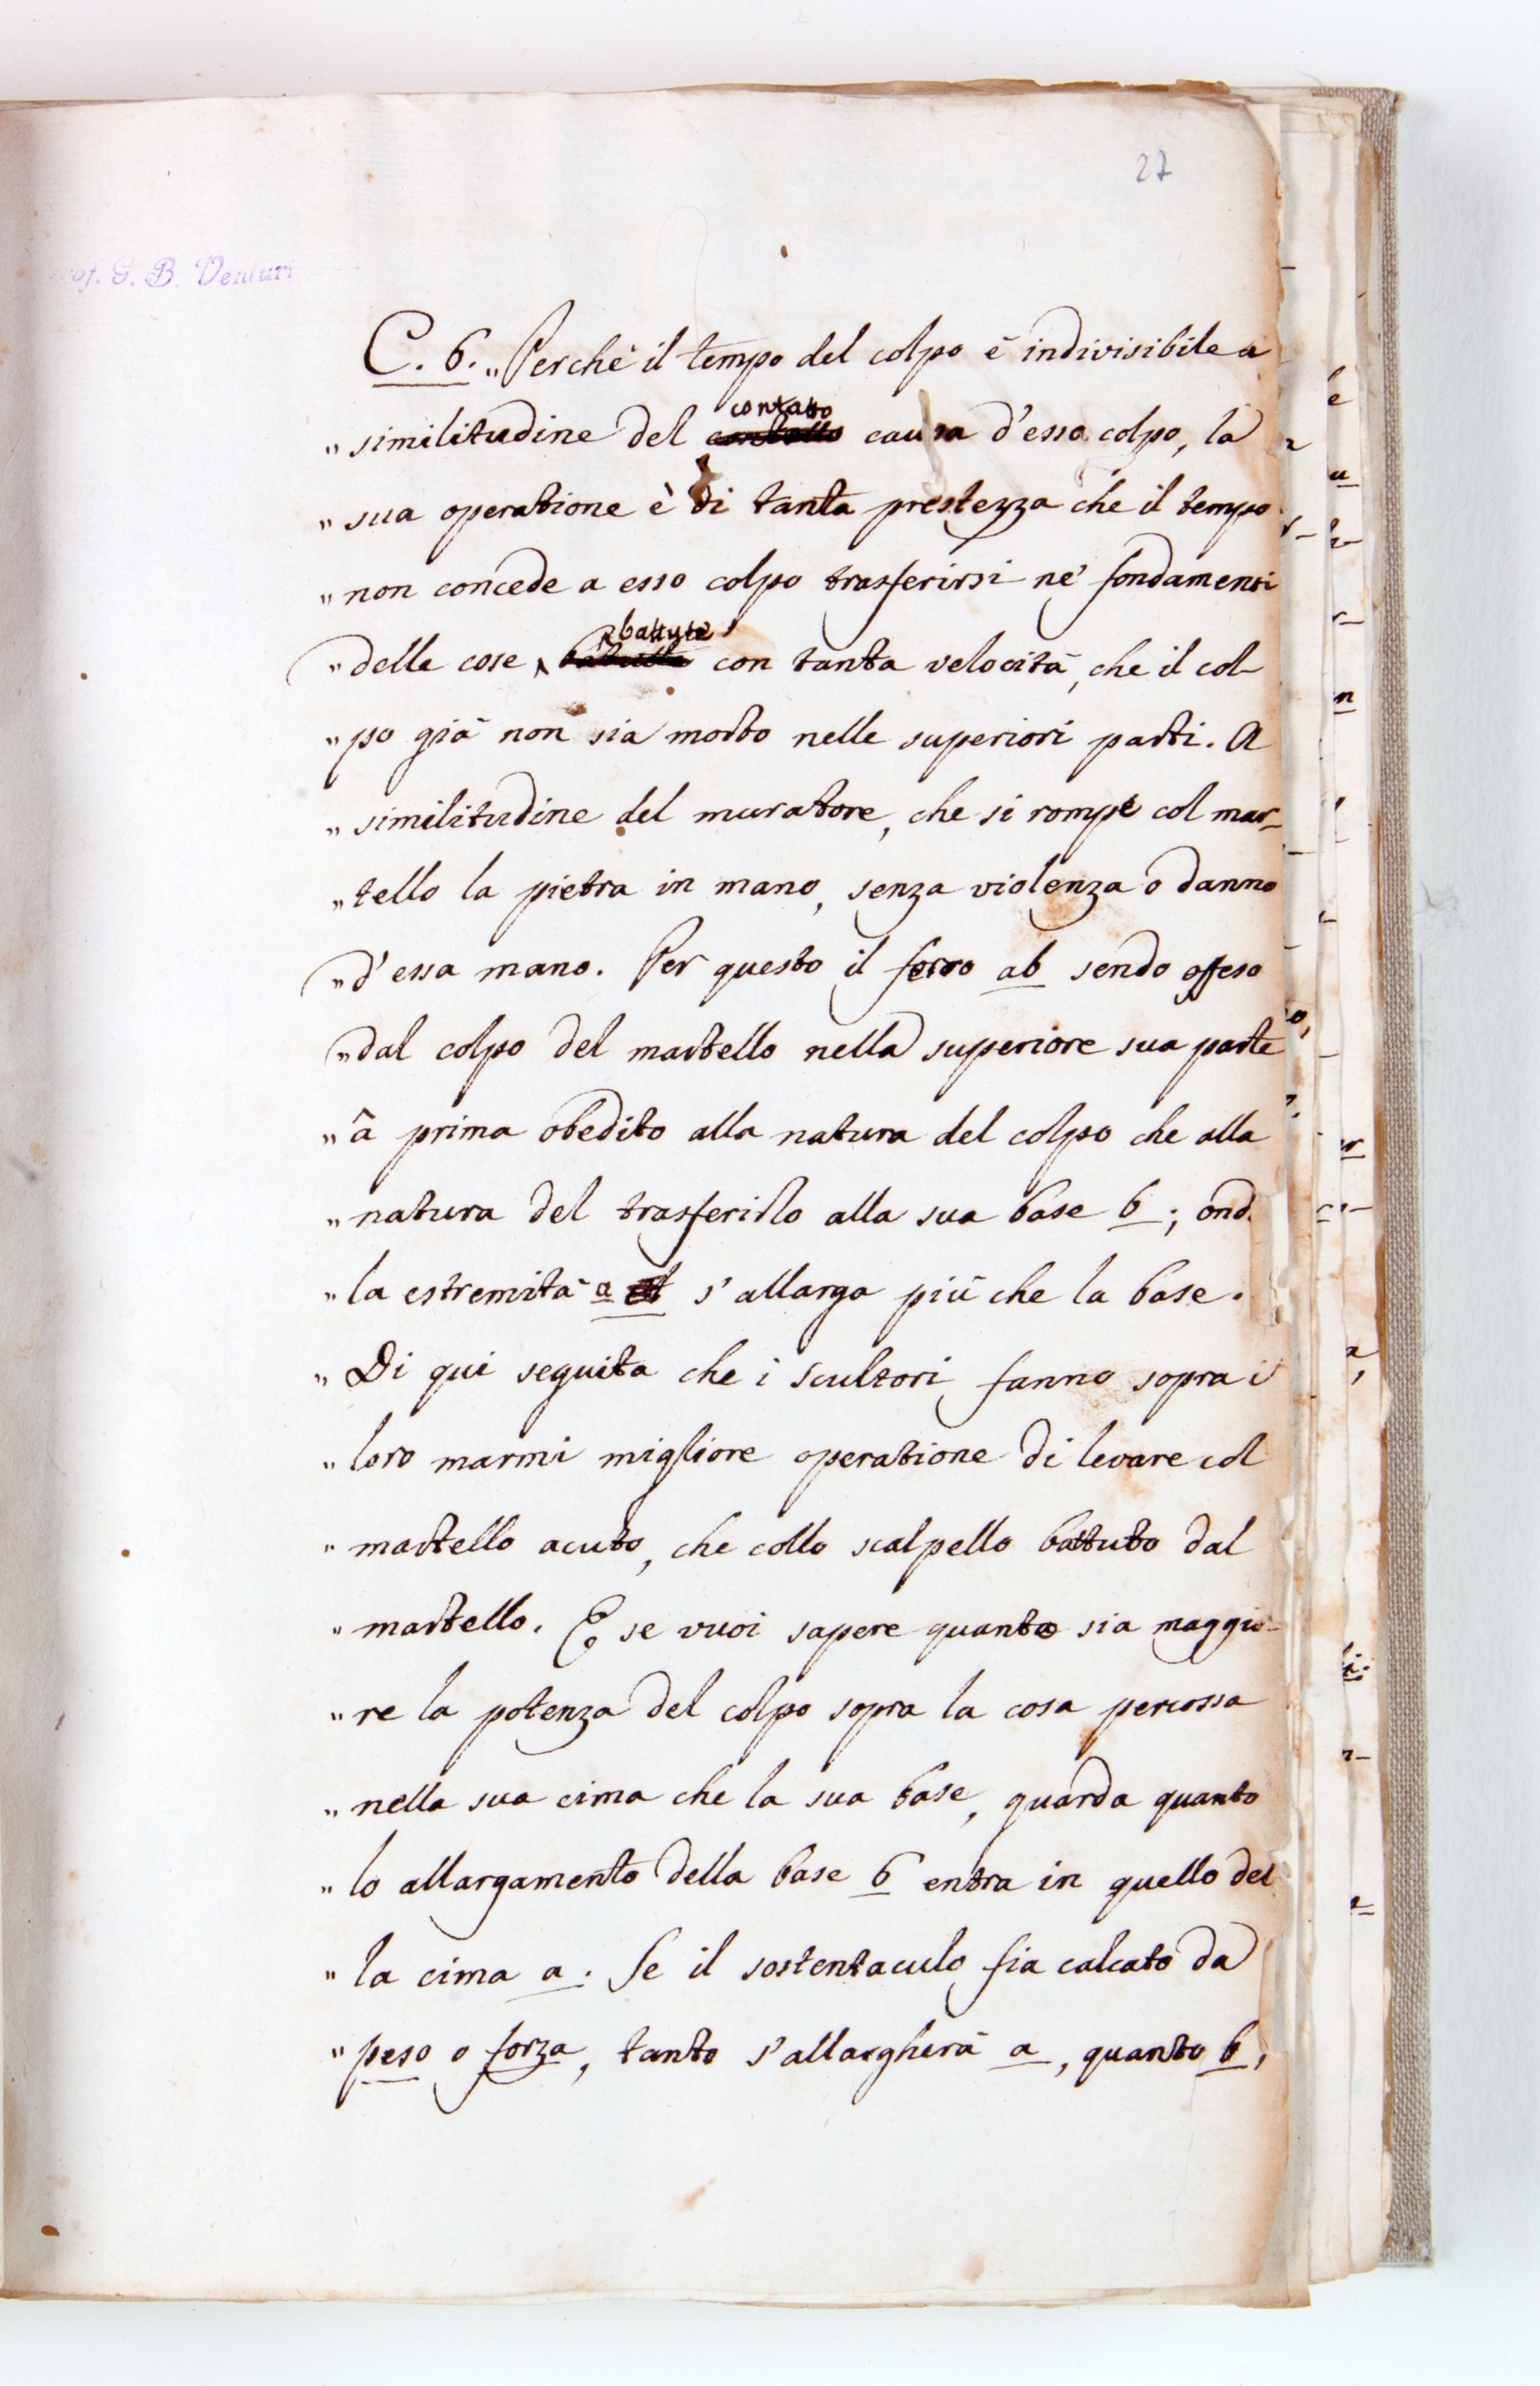 27
Prof. G. B. Venturi
C. 6. „ Perchè il tempo del colpo è indivisibile a
„ similitudine del contatto causa d'esso colpo, la
„ sua operatione è di tanta prestezza che il tempo
„ non concede a esso colpo trasferirsi ne' fondamenti
„ delle cose battute con tanta velocità, che il col-
„ po già non sia morto nelle superiori parti. A
„ similitudine del muratore, che si rompe col mar-
„ tello la pietra in mano, senza violenza o danno
„ d'essa mano. Per questo il ferro ab sendo offeso
„ dal colpo del martello nella superiore sua parte
„ â prima obedito alla natura del colpo che alla
„ natura del trasferirlo alla sua base b; ond
„ la estremità a s'allarga più che la base.
„ Di qui seguita che i scultori fanno sopra i
„ loro marmi migliore operatione di levare col
„ martello acuto, che collo scalpello battuto dal
„ martello. E se vuoi sapere quanto sia maggio-
„ re la potenza del colpo sopra la cosa percossa
„ nella sua cima che la sua base, guarda quanto
„ lo allargamento della base b entra in quello del
„ la cima a. Se il sostentaculo fia calcato da
„ peso o forza, tanto s'allargherà a, quanto b,